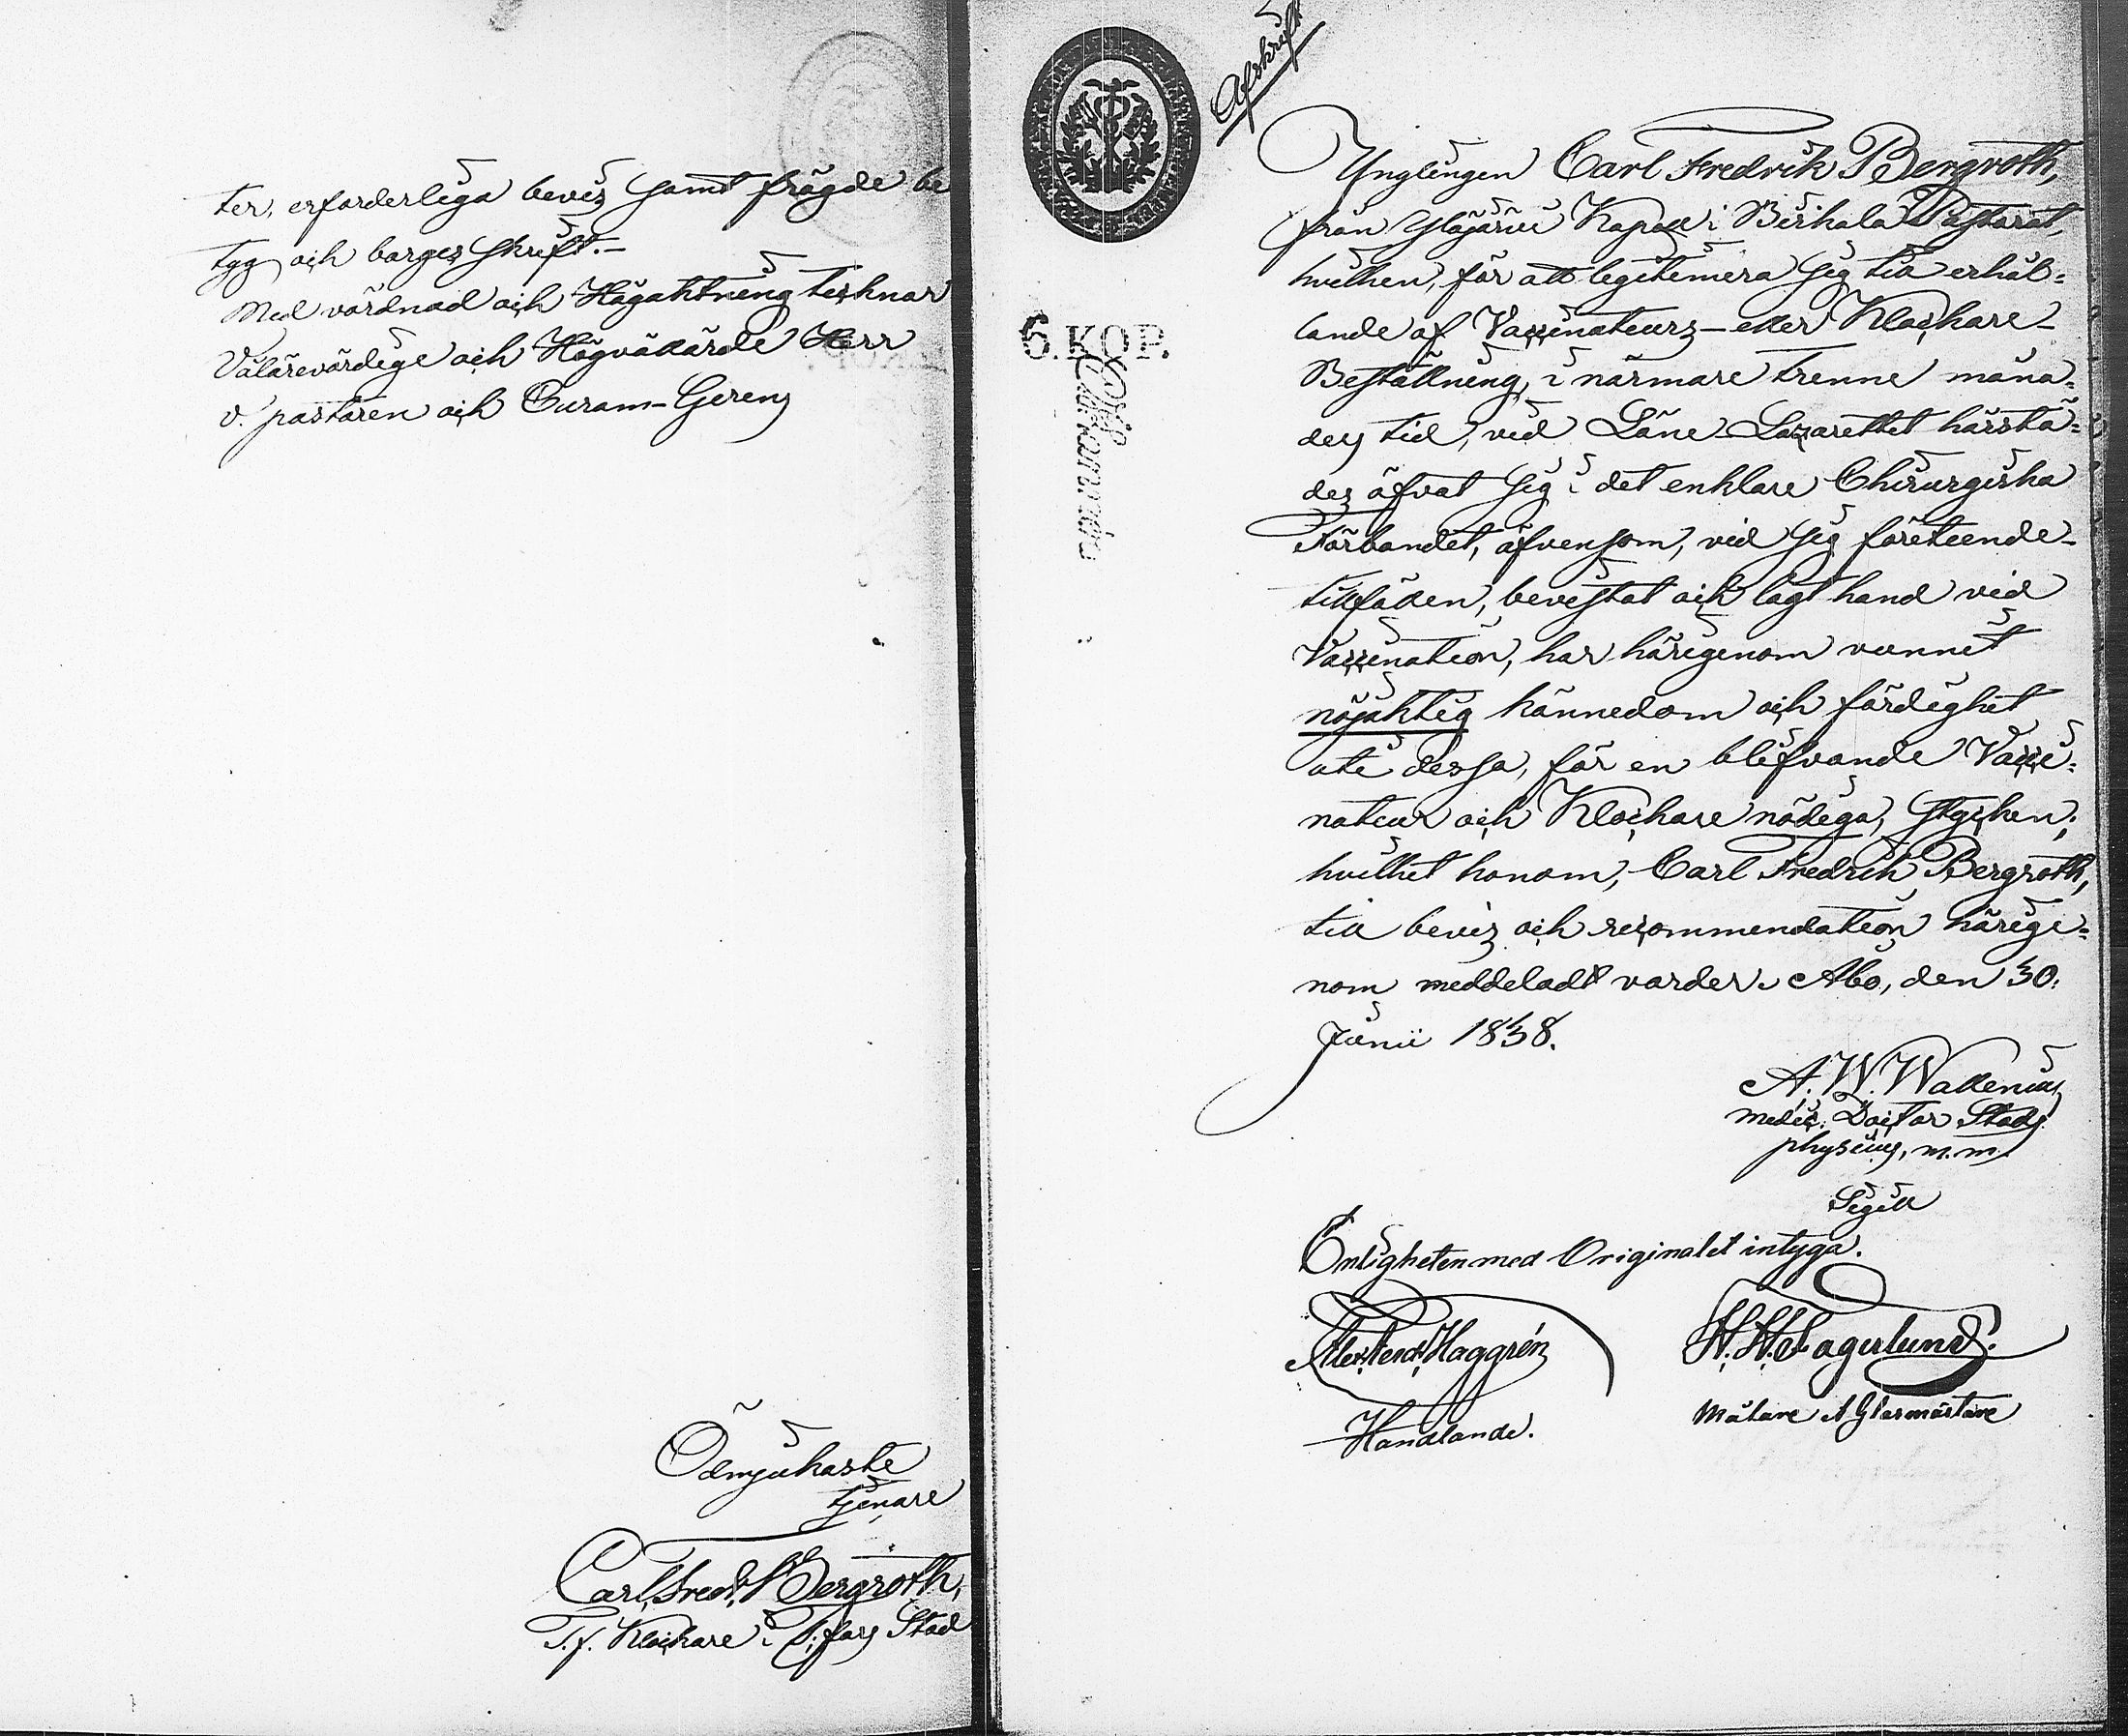 ter, erforderliga bevis samt frägde be
tyg och borges skrift.—
Med vördnad och Högaktning teknar
Välärevördige och Högvällärde Herr
v. pastoren och Curam-Gerens
Ödmjukaste
tjenare
Carl Fredr. Bergroth,
T. f. Klockare i T:fors Stad
Afskrift
6. KOP.
Ynglingen Carl Fredrik Bergroth,
från Ylöjärvi Kapell i Birkala Pastorat,
hvilken, för att legitimera sig till erhål=
lande af Vaccinateurs- eller Klockare-
Beställning, i närmare trenne måna=
des tid, vid Läne-Lazarettet härstä=
des öfvat sig i det enklare Chirurgiska
Förbandet, äfvensom, vid sig företeende-
tillfällen, bevistat och lagt hand vid
Vaccination, har härigenom vunnit
nöjaktig kännedom och färdighet
uti dessa, för en blifvande Vacci=
nateur och Klockare nödiga, stycken;
hvilket honom, Carl Fredrik Bergroth,
till bevis och recommendation härige=
nom meddeladt varder. Åbo, den 30.
Junii 1838.
A. W. Wallenius
Medic. Doctor Stads
physicus, m. m.
Sigill
Enligheten med Originalet intyga.
Haggrén
H. H. Fagerlund.
Handlande.
Målare & Glasmästare